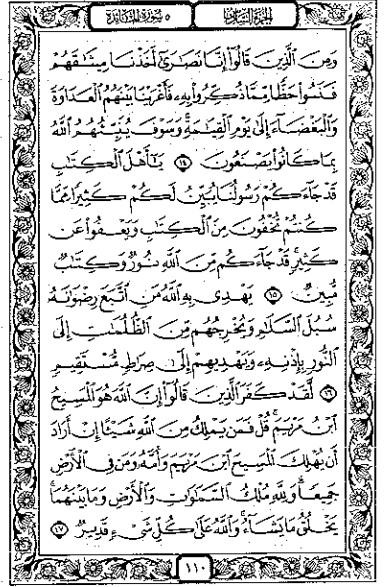 الجزء السادس
٥ سورة المائدة
وَمِنَ الَّذِينَ قَالُوا إِنَّا نَصَارَىٰ أَخَذْنَا مِيثَاقَهُمْ
فَنَسُوا حَظًّا مِّمَّا ذُكِّرُوا بِهِ فَأَغْرَيْنَا بَيْنَهُمُ الْعَدَاوَةَ
وَالْبَغْضَاءَ إِلَىٰ يَوْمِ الْقِيَامَةِ وَسَوْفَ يُنَبِّئُهُمُ اللَّهُ
بِمَا كَانُوا يَصْنَعُونَ ١٤ يَا أَهْلَ الْكِتَابِ
قَدْ جَاءَكُمْ رَسُولُنَا يُبَيِّنُ لَكُمْ كَثِيرًا مِّمَّا
كُنتُمْ تُخْفُونَ مِنَ الْكِتَابِ وَيَعْفُو عَن
كَثِيرٍ قَدْ جَاءَكُم مِّنَ اللَّهِ نُورٌ وَكِتَابٌ
مُّبِينٌ ١٥ يَهْدِي بِهِ اللَّهُ مَنِ اتَّبَعَ رِضْوَانَهُ
سُبُلَ السَّلَامِ وَيُخْرِجُهُم مِّنَ الظُّلُمَاتِ إِلَى
النُّورِ بِإِذْنِهِ وَيَهْدِيهِمْ إِلَىٰ صِرَاطٍ مُّسْتَقِيمٍ
١٦ لَّقَدْ كَفَرَ الَّذِينَ قَالُوا إِنَّ اللَّهَ هُوَ الْمَسِيحُ
ابْنُ مَرْيَمَ قُلْ فَمَن يَمْلِكُ مِنَ اللَّهِ شَيْئًا إِنْ أَرَادَ
أَن يُهْلِكَ الْمَسِيحَ ابْنَ مَرْيَمَ وَأُمَّهُ وَمَن فِي الْأَرْضِ
جَمِيعًا وَلِلَّهِ مُلْكُ السَّمَاوَاتِ وَالْأَرْضِ وَمَا بَيْنَهُمَا
يَخْلُقُ مَا يَشَاءُ وَاللَّهُ عَلَىٰ كُلِّ شَيْءٍ قَدِيرٌ ١٧
١١٠